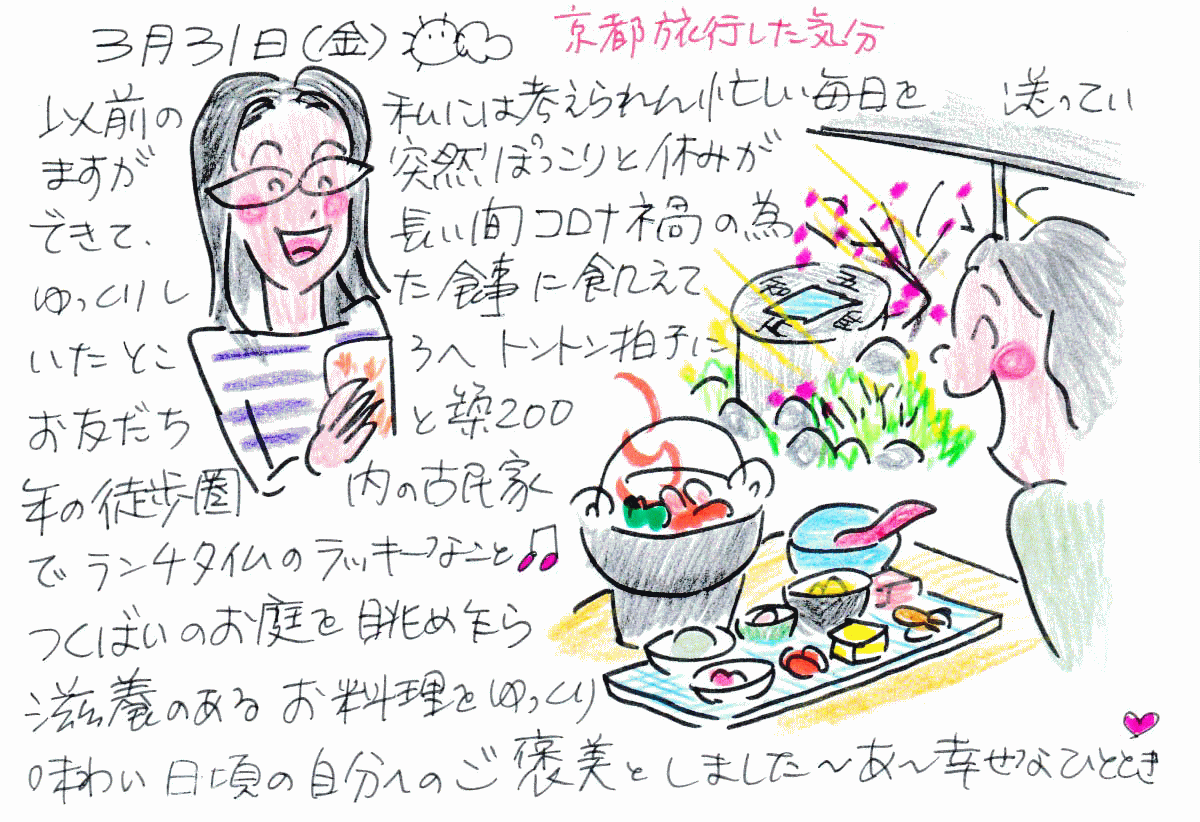 3月31日(金)
京都旅行した気分
以前の私には考えられん忙しい毎日を送ってい
ますが突然ぽっこりと休みが
できて、長い間コロナ禍の為
ゆっくりした食事に飢えて
いたところへトントン拍子に
お友だちと築200
年の徒歩圏内の古民家
でランチタイムのラッキーなこと
つくばいのお庭を眺めたら
滋養のあるお料理をゆっくり
味わい日頃の自分へのご褒美としました〜あ〜幸せなひととき